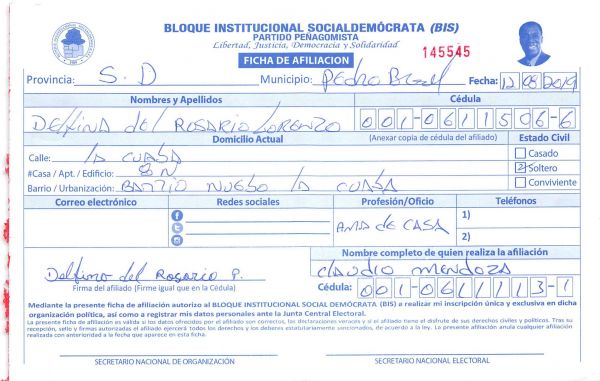 BLOQUE INSTITUCIONAL SOCIALDEMÓCRATA (BIS)
PARTIDO PEÑAGOMISTA
Libertad, Justicia, Democracia y Solidaridad
145545
FICHA DE AFILIACION
Provincia: S.D Municipio: Pedro Brand Fecha: 12/08/2019
Nombres y Apellidos Cédula
Delfina del Rosario Lorenzo 001-0611506-6
Domicilio Actual (Anexar copia de cédula del afiliado) Estado Civil
Calle: la cuaba Casado
#Casa / Apt. / Edificio: 8N Soltero
Barrio / Urbanización: Barrio Nuebo la cuaba Conviviente
Correo electrónico Redes sociales Profesión/Oficio Teléfonos
Ama de casa 1)
2)
Nombre completo de quien realiza la afiliación
Delfino del Rosario P. Claudio Mendoza
Firma del afiliado (Firme igual que en la Cédula) Cédula: 001-0611113-1
Mediante la presente ficha de afiliación autorizo al BLOQUE INSTITUCIONAL SOCIAL DEMÓCRATA (BIS) a realizar mi inscripción única y exclusiva en dicha
organización política, así como a registrar mis datos personales ante la Junta Central Electoral.
La presente ficha de afiliación es válida si los datos ofrecidos por el afiliado son correctos, las declaraciones veraces y si el afiliado tiene el disfrute de sus derechos civiles y políticos. Tras su
recepción, sello y firmas autorizadas el afiliado ejercerá todos los derechos y los deberes estatutariamente sancionados, de acuerdo a la ley. La presente afiliación anula cualquier afiliación
realizada con anterioridad a la fecha que aparece en esta ficha.
SECRETARIO NACIONAL DE ORGANIZACIÓN SECRETARIO NACIONAL ELECTORAL